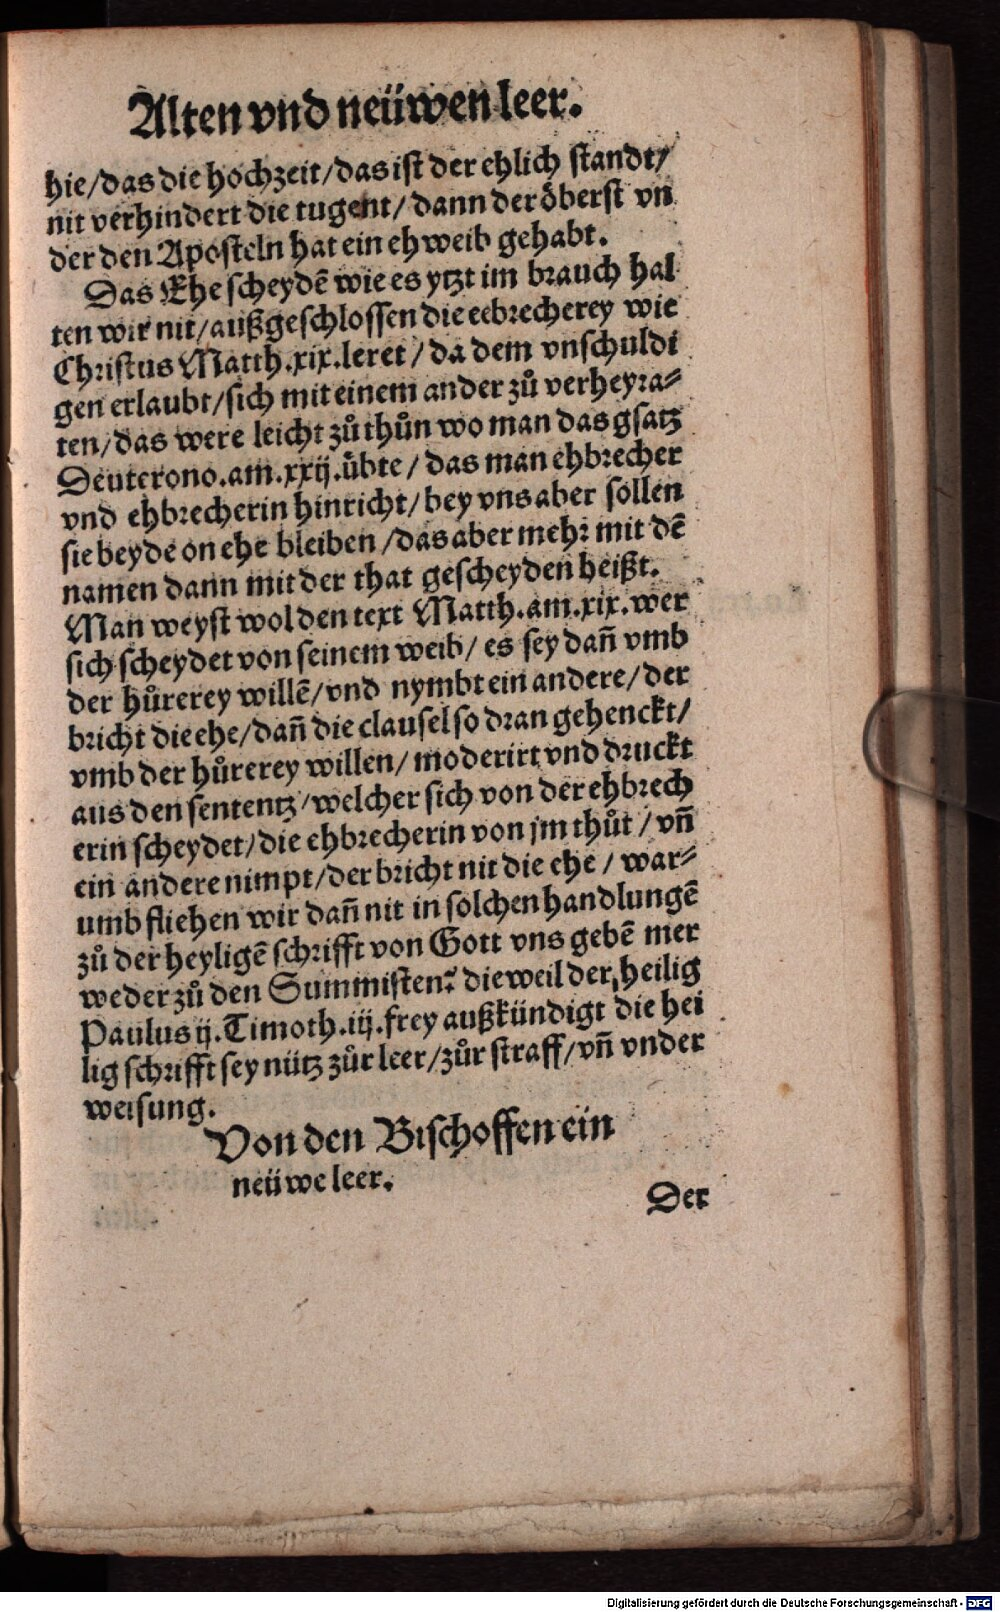 Alten vnd neüwen leer.
hie/das die hochzeit/das ist der ehlich standt/
nit verhindert die tugent/dann der öberst vn
der den Aposteln hat ein eh weib gehabt.
Das Ehe scheydē wie es ytzt im brauch hal
ten wir nit/außgeschlossen die eebrecherey wie
Christus Matth.xix.leret/da dem vnschuldi
gen erlaubt/sich mit einem ander zů verheyra⸗
ten/das were leicht zůthůn wo man das gsatz
Deuterono.am.xxij.übte/das man ehbrecher
vnd ehbrecherin hinricht/bey vns aber sollen
sie beyde on ehe bleiben/das aber mehr mit dē
namen dann mit der that gescheyden heißt.
Man weyst wol den text Matth.am.xix.wer
sich scheydet von seinem weib/es sey dañ vmb
der hůrerey willē/vnd nymbt ein andere/der
bricht die ehe/dañ die clausel so dran gehenckt/
vmb der hůrerey willen/moderirt vnd druckt
aus den sententz/welcher sich von der ehbrech
erin scheydet/die ehbrecherin von jm thůt/vñ
ein andere nimpt/der bricht nit die ehe/war⸗
umb fliehen wir dañ nit in solchen handlungē
zů der heyligē schrifft von Gott vns gebē mer
weder zů den Summisten? dieweil der heilig
Paulus ij.Timoth.iij.frey außkündigt die hei
lig schrifft sey nütz zůr leer/zůr straff/vñ vnder
weisung.
Von den Bischoffen ein
neüwe leer.
Der
Digitalisierung gefördert durch die Deutsche Forschungsgemeinschaft - DFG